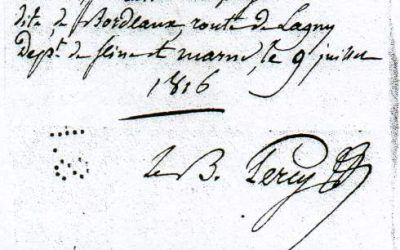 dite, de Bordeaux, route de Lagny
Dept. de Seine et marne, le 9 juillet
1816
le B. Percy